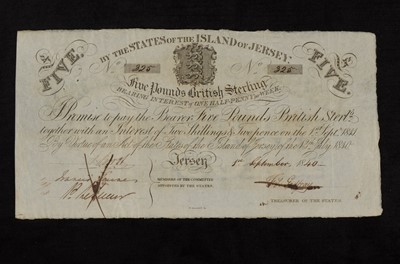 BY THE STATES OF THE ISLAND OF JERSEY.
FIVE
FIVE
No 325
No 325
Five Pounds British Sterling
BEARING INTEREST ONE HALF-PENNY WEEK.
I Promise to pay the Bearer Five Pounds British Sterlg.
together with an Interest of Two Shillings & Two pence on the 1st Septr. 1841
By Virtue of an Act of the States of the Island of Jersey of the July 1840
Jersey 1st September 1840
MEMBERS OF THE COMMITTEE
APPOINTED BY THE STATES.
TREASURER OF THE STATES